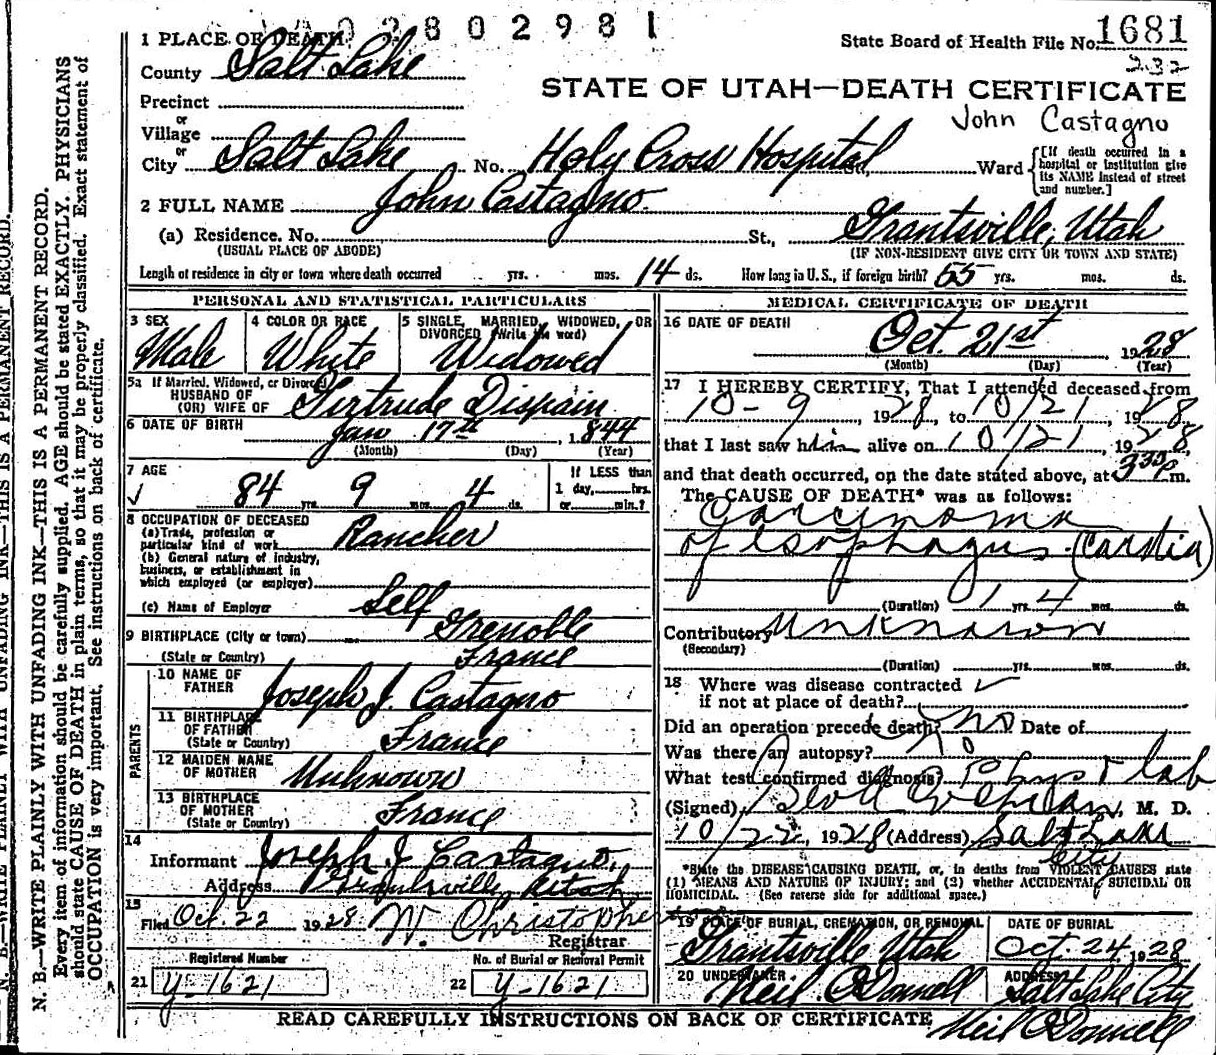 2802981
1681
State Board of Health File No.
232
1 PLACE OF DEATH
County Salt Lake
STATE OF UTAH—DEATH CERTIFICATE
Precinct
or
Village
John Castagno
or
City Salt Lake No. Holy Cross Hospital St., Ward
[If death occurred in a
hospital or institution give
its NAME instead of street
and number.]
2 FULL NAME John Castagno
(a) Residence. No. St., Grantsville, Utah
(USUAL PLACE OF ABODE) (IF NON-RESIDENT GIVE CITY OR TOWN AND STATE)
Length of residence in city or town where death occurred yrs. mos. 14 ds. How long in U.S., if foreign birth? 55 yrs. mos. ds.
PERSONAL AND STATISTICAL PARTICULARS
3 SEX
Male
4 COLOR OR RACE
White
5 SINGLE, MARRIED, WIDOWED, OR
DIVORCED (Write the word)
Widowed
5a If Married, Widowed, or Divorced
HUSBAND OF
(OR) WIFE OF Gertrude Dispain
6 DATE OF BIRTH Jan 17th, 1844
(Month) (Day) (Year)
7 AGE
84 yrs. 9 mos. 4 ds.
If LESS than
1 day, hrs.
or min.?
8 OCCUPATION OF DECEASED
(a) Trade, profession or
particular kind of work Rancher
(b) General nature of industry,
business, or establishment in
which employed (or employer)
(c) Name of Employer Self
9 BIRTHPLACE (City or town) Grenoble
(State or Country) France
PARENTS
10 NAME OF
FATHER Joseph J. Castagno
11 BIRTHPLACE
OF FATHER
(State or Country) France
12 MAIDEN NAME
OF MOTHER Unknown
13 BIRTHPLACE
OF MOTHER
(State or Country) France
14
Informant Joseph J Castagno,
Address Grantsville, Utah
15
Filed Oct. 22 1928 W. Christophe
Registrar
Registered Number
21 Y-1621
No. of Burial or Removal Permit
22 Y-1621
MEDICAL CERTIFICATE OF DEATH
16 DATE OF DEATH
Oct. 21st, 1928
(Month) (Day) (Year)
17 I HEREBY CERTIFY, That I attended deceased from
10-9, 1928, to 10/21, 1928,
that I last saw him alive on 10/21, 1928,
and that death occurred, on the date stated above, at 335 P m.
The CAUSE OF DEATH* was as follows:
Carcinoma
of Esophagus (Cardia)
(Duration) 1 yrs. 4 mos. ds.
Contributory Unknown
(Secondary)
(Duration) yrs. mos. ds.
18 Where was disease contracted
if not at place of death?
Did an operation precede death? no Date of
Was there an autopsy? no
What test confirmed diagnosis? Phys & lab
(Signed) M. D.
10/22, 1928 (Address) Salt Lake
City
*State the DISEASE CAUSING DEATH, or, in deaths from VIOLENT CAUSES state
(1) MEANS AND NATURE OF INJURY; and (2) whether ACCIDENTAL, SUICIDAL OR
HOMICIDAL. (See reverse side for additional space.)
19 PLACE OF BURIAL, CREMATION, OR REMOVAL
Grantsville Utah
DATE OF BURIAL
Oct. 24, 1928
20 UNDERTAKER
Neil O'Donnell
ADDRESS
Salt Lake City
READ CAREFULLY INSTRUCTIONS ON BACK OF CERTIFICATE
Neil O'Donnell
N. B.—WRITE PLAINLY WITH UNFADING INK—THIS IS A PERMANENT RECORD.
N. B.—WRITE PLAINLY WITH UNFADING INK—THIS IS A PERMANENT RECORD.
Every item of information should be carefully supplied. AGE should be stated EXACTLY. PHYSICIANS
should state CAUSE OF DEATH in plain terms, so that it may be properly classified. Exact statement of
OCCUPATION is very important. See instructions on back of certificate.